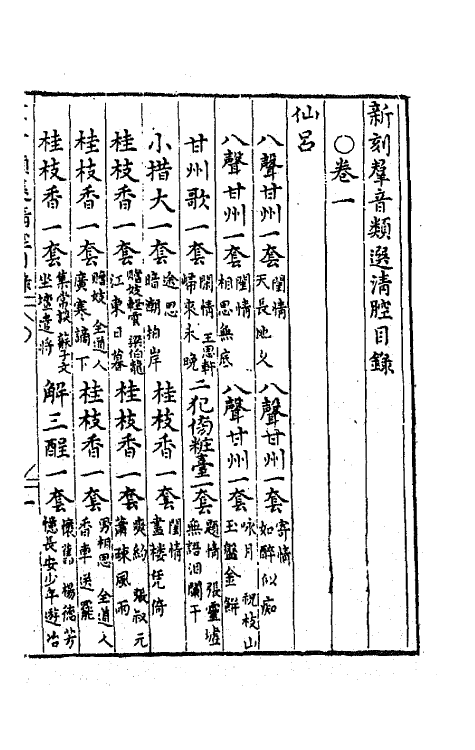 新刻羣音類選清腔目錄
○卷一
仙呂
八聲甘州一套 閨情 天長地久 八聲甘州一套 寄情 如醉似痴
八聲甘州一套 閨情 相思無底 八聲甘州一套 咏月 祝枝山 玉盤金餅
甘州歌一套 閨情 王思軒 歸來永晚 二犯傍粧臺一套 題情 張靈墟 無語泪闌干
小措大一套 途思 暗潮拍岸 桂枝香一套 閨情 畫樓凭倚
桂枝香一套 贈妓輕雲 梁伯龍 江東日暮 桂枝香一套 爽約 張叔元 蕭疎風雨
桂枝香一套 贈妓 全道人 廣寒謫下 桂枝香一套 男相思 全道人 香車送罷
桂枝香一套 集常談 蘇子文 坐壇遣將 解三酲一套 懷舊 楊德芳 憶長安少年遊冶